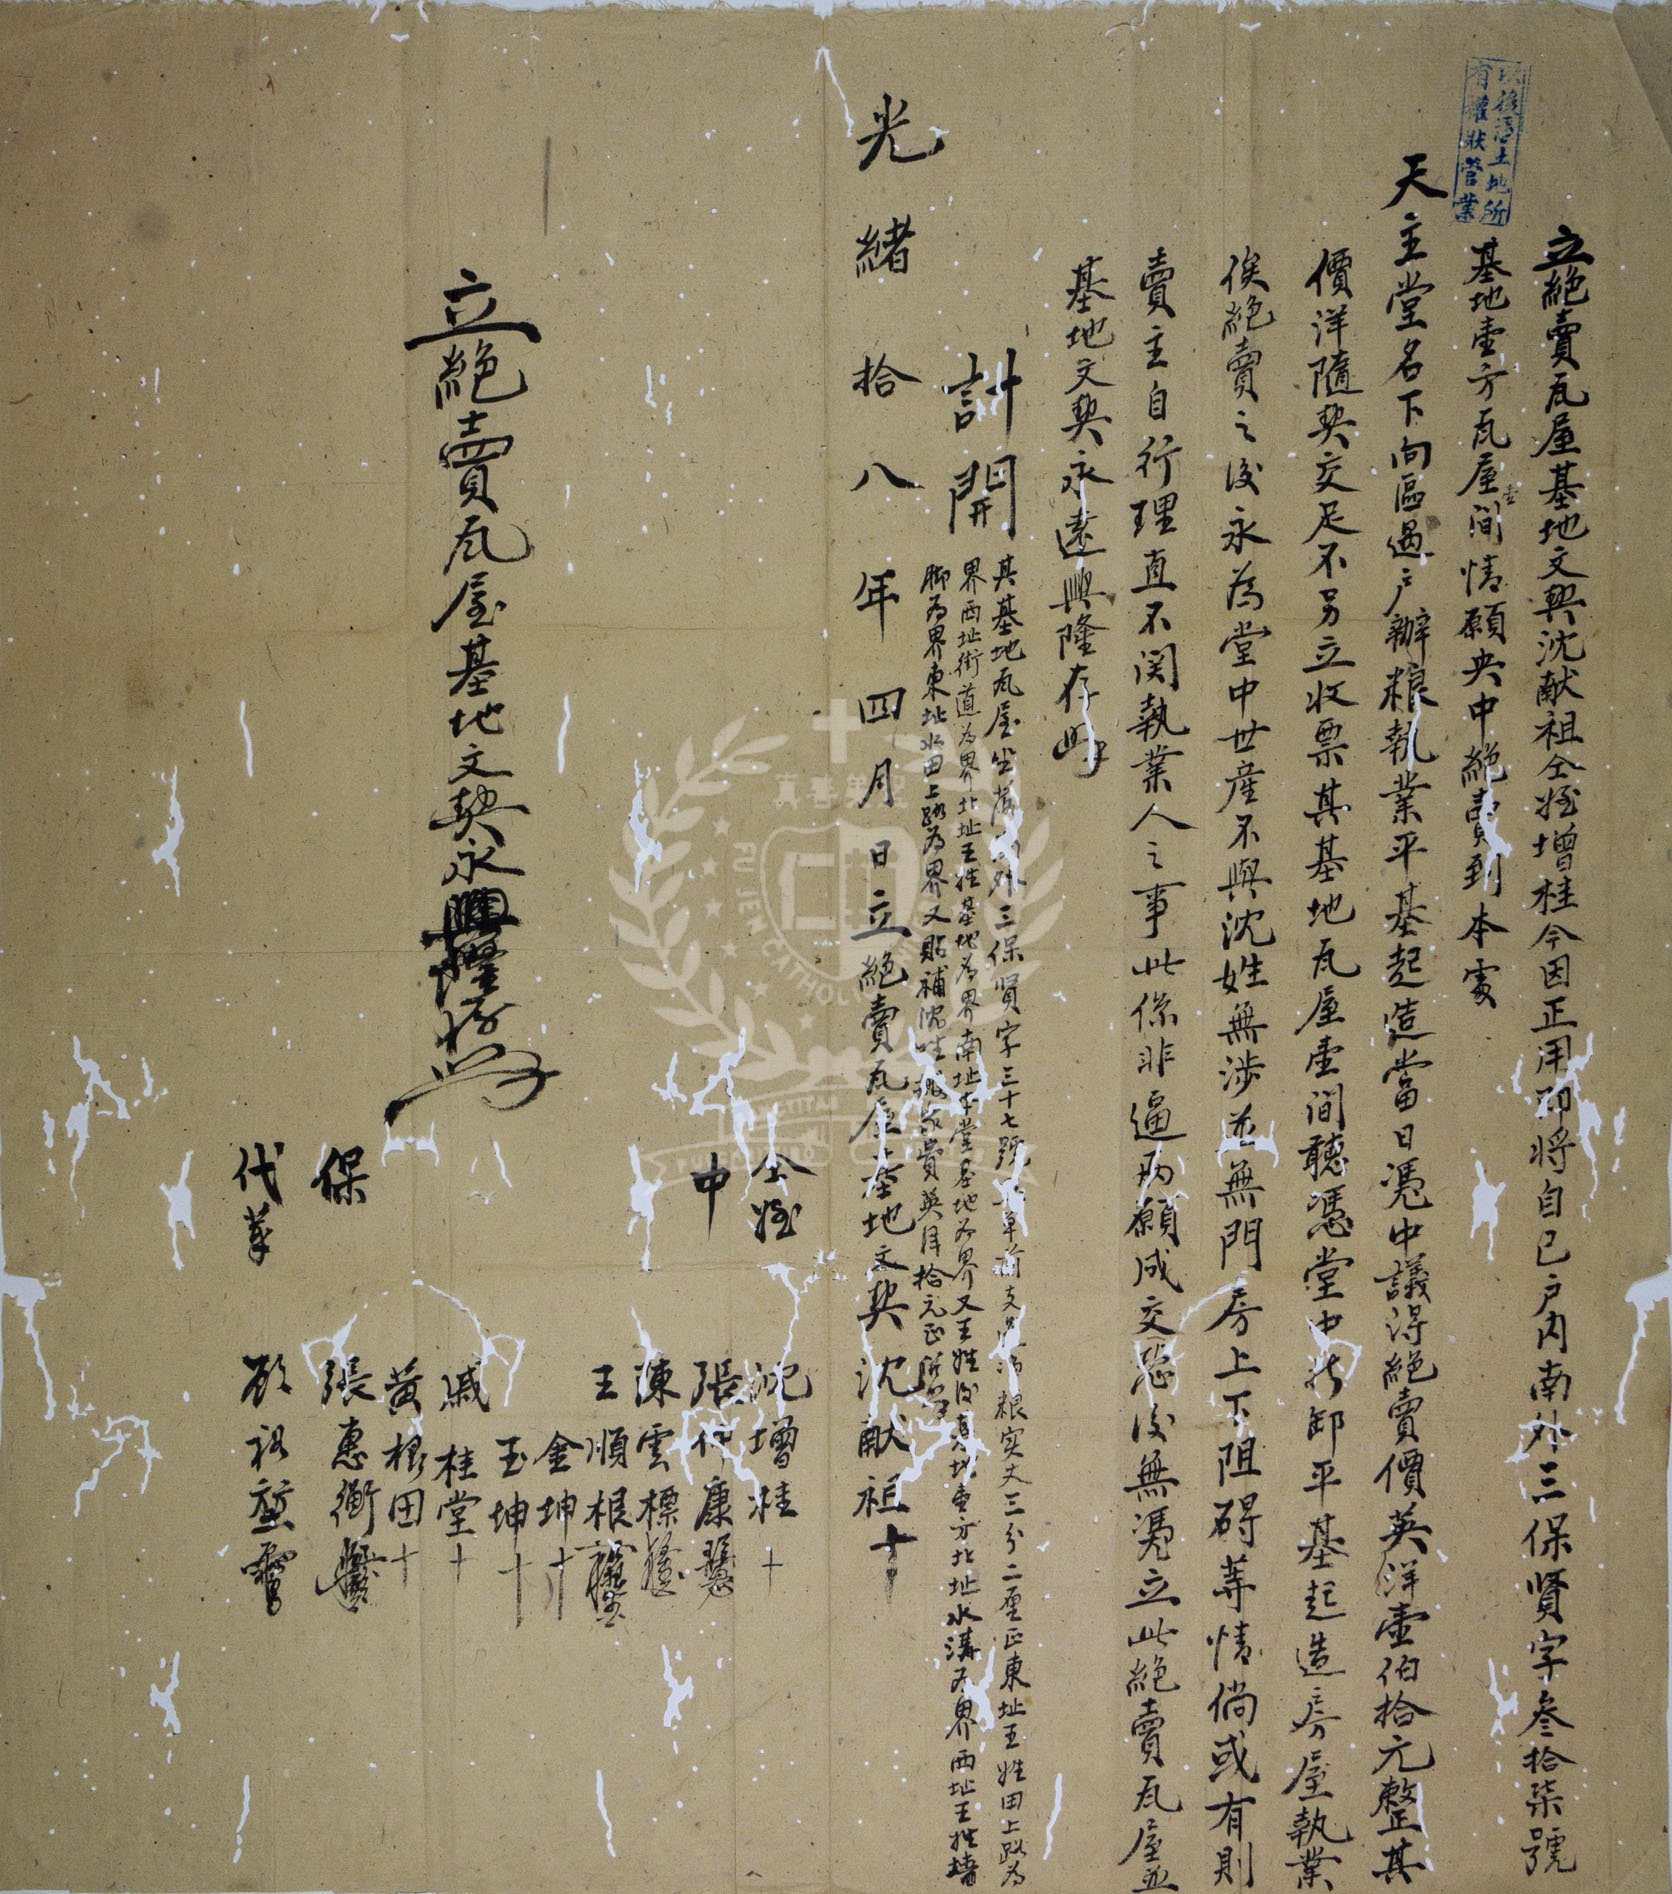 以後憑土地所
有權狀管業
立絕賣瓦屋基地文契沈献祖仝姪增桂今因正用即將自己户內南外三保賢字叁拾柒號
基地壹方瓦屋壹間情願央中絕賣到本處
天主堂名下向區過户辦粮執業平基起造當日憑中議得絕賣價英洋壹伯拾元整其
價洋隨契交足不另立收票其基地瓦屋壹間聽憑堂中折卸平基起造房屋執業
俟絕賣之後永為堂中世產不與沈姓無涉並無門房上下阻碍等情倘或有則
賣主自行理直不関執業人之事此係非逼两願成交恐後無憑立此絕賣瓦屋並
基地文契永遠興隆存照
計開
其基地瓦屋坐落南外三保賢字三十七號 粮实丈三分二厘正東址王姓田上路為
界西址街道為界北址王姓基地為界南址本堂基地為界又王姓後真地壹方北址水溝為界西址王姓墻
脚為界東址水田上路為界又貼補沈姓搬家費英洋拾元正所字
光緒拾八年四月日立絕賣瓦屋基地文契沈献祖十
仝姪 沈增桂十
中 張仲康
陳雲標
王順根
金坤十
玉坤十
戚桂堂十
黃根田十
保 張惠衡
代筆 祝
立絕賣瓦屋基地文契永興隆存照
真善美聖
FU JEN CATHOLIC